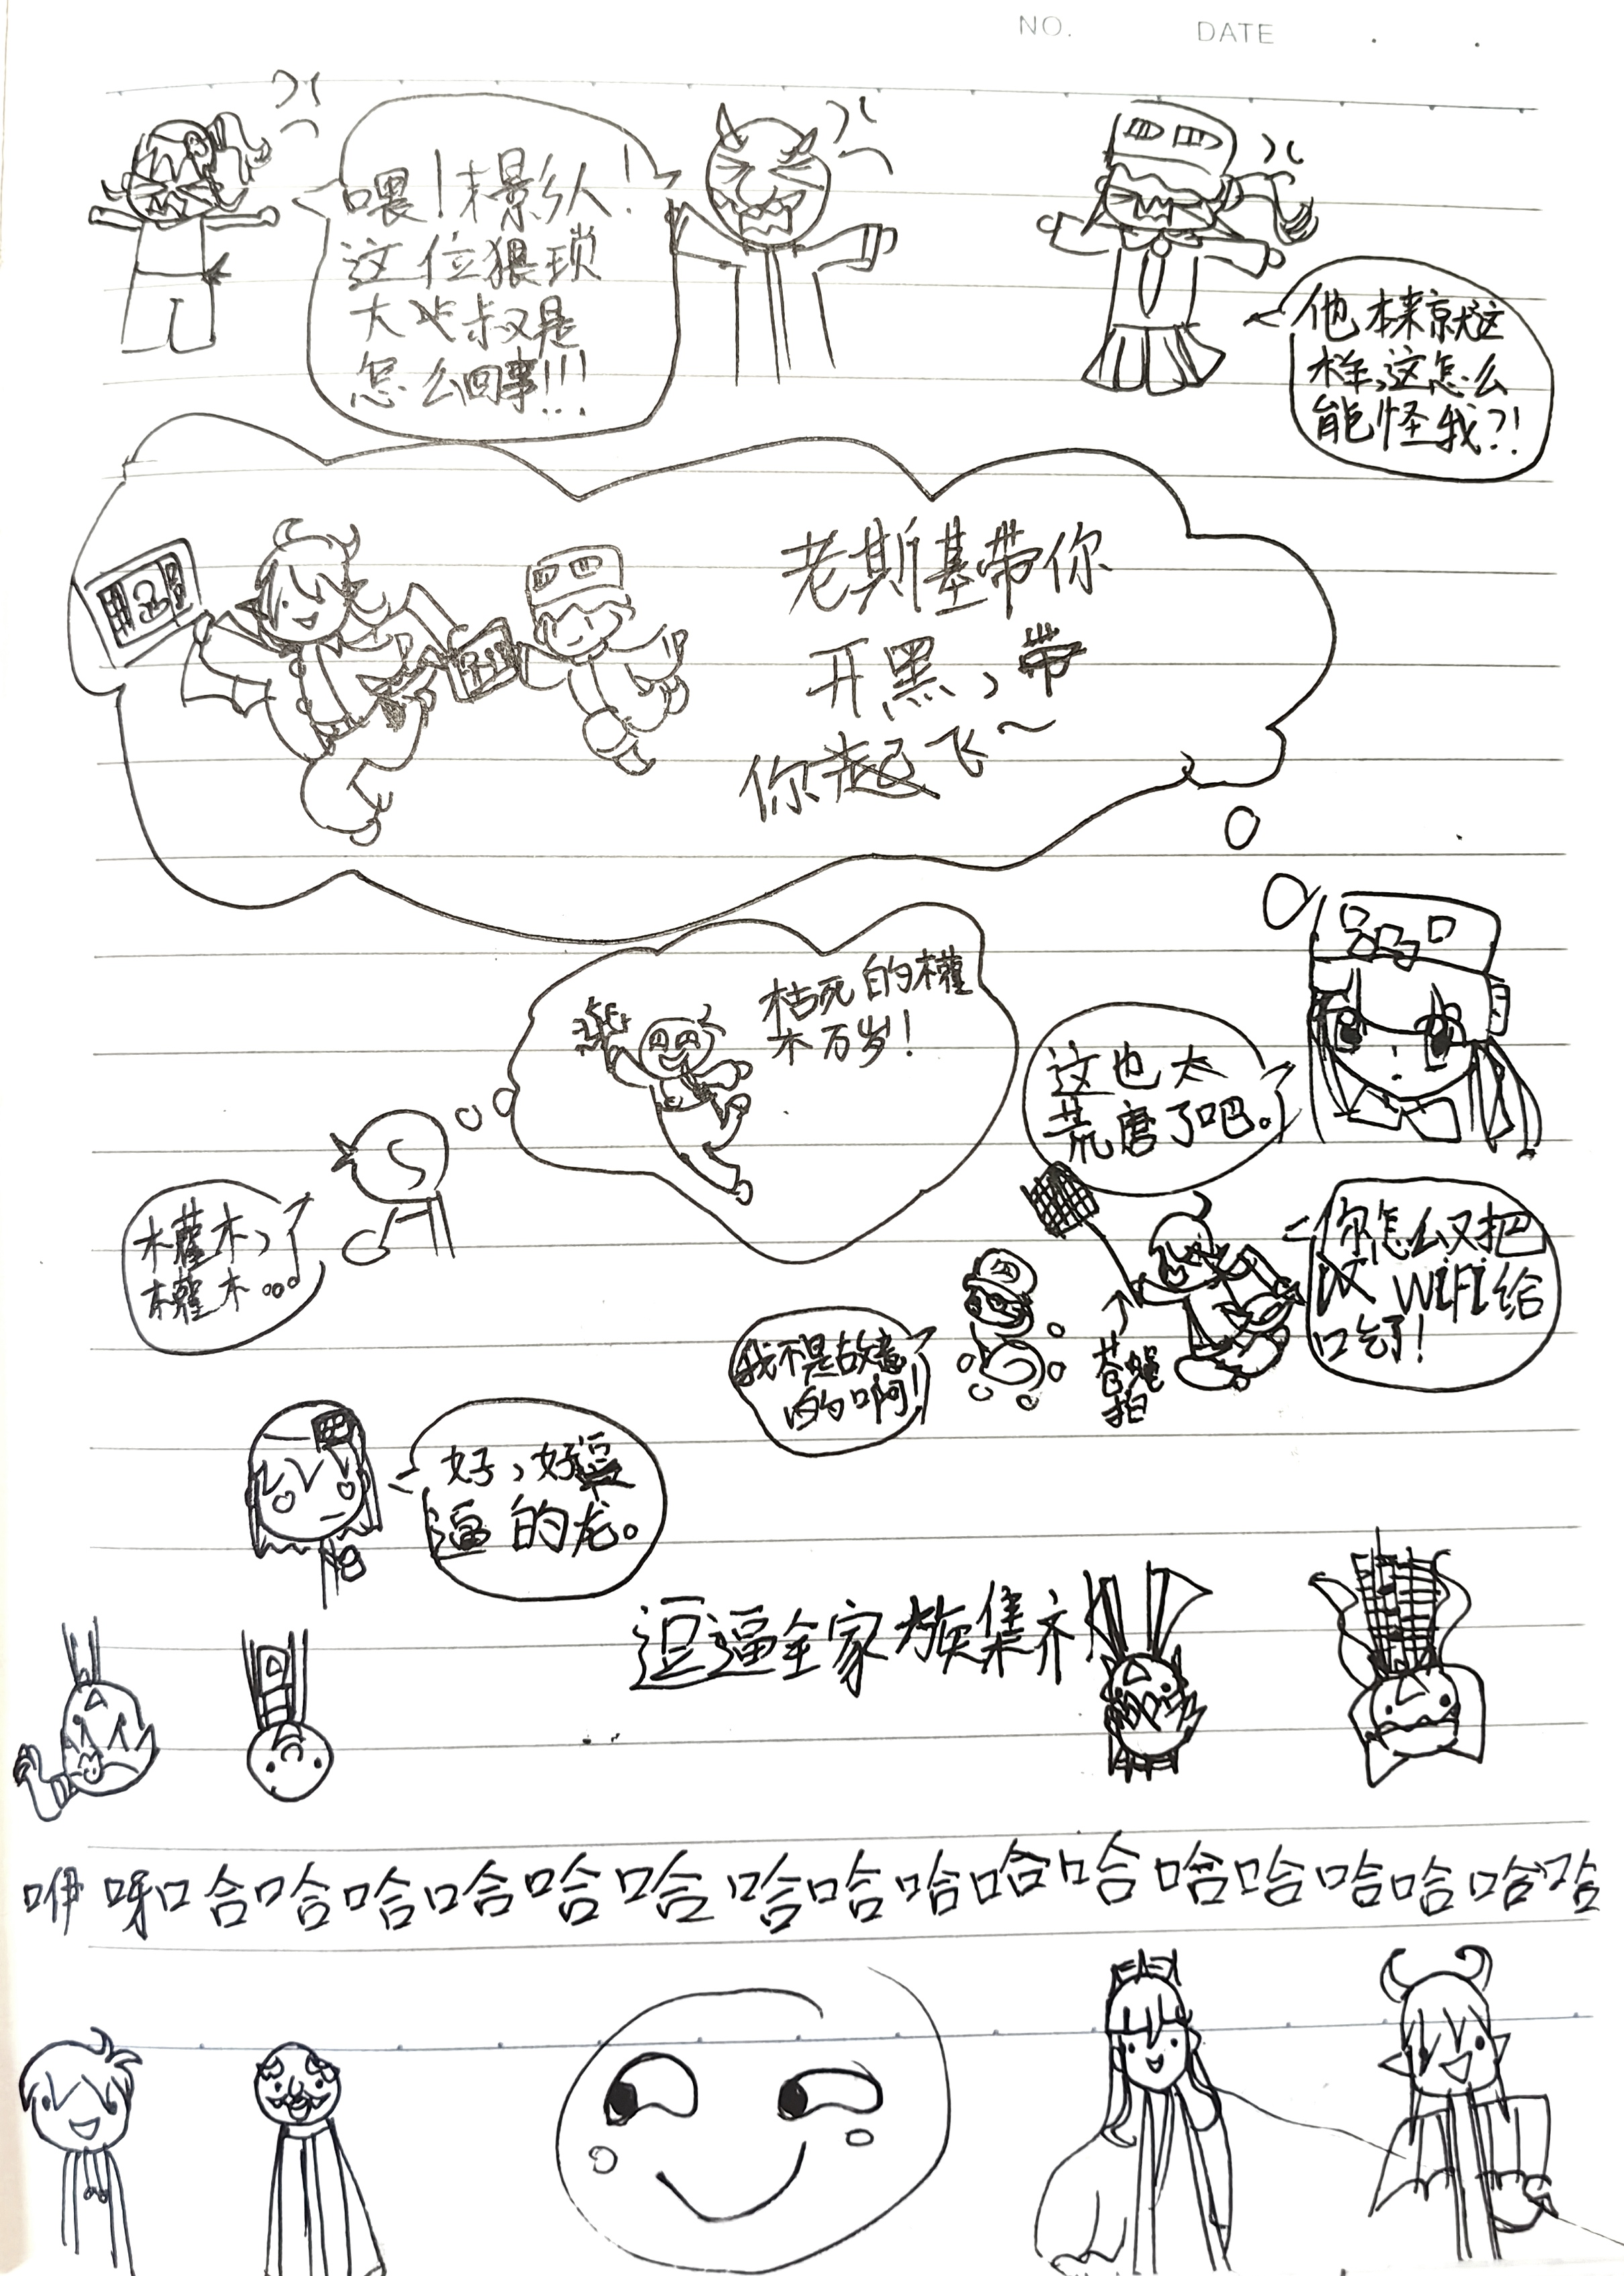 NO. DATE
喂！末影人！
这位猥琐
大大叔是
怎么回事!!!
他本来就这
样,这怎么
能怪我?!
老斯基带你
开黑，带
你起飞～
枯死的灌
木万岁！
这也太
荒唐了吧。
灌木，
灌木...
你怎么又把
WIFI给
吃了！
我不是故意
的啊！
苍蝇拍
好，好逗
逼的龙。
逗逼全家族集齐！
咿呀哈哈哈哈哈哈哈哈哈哈哈哈哈哈哈哈哈